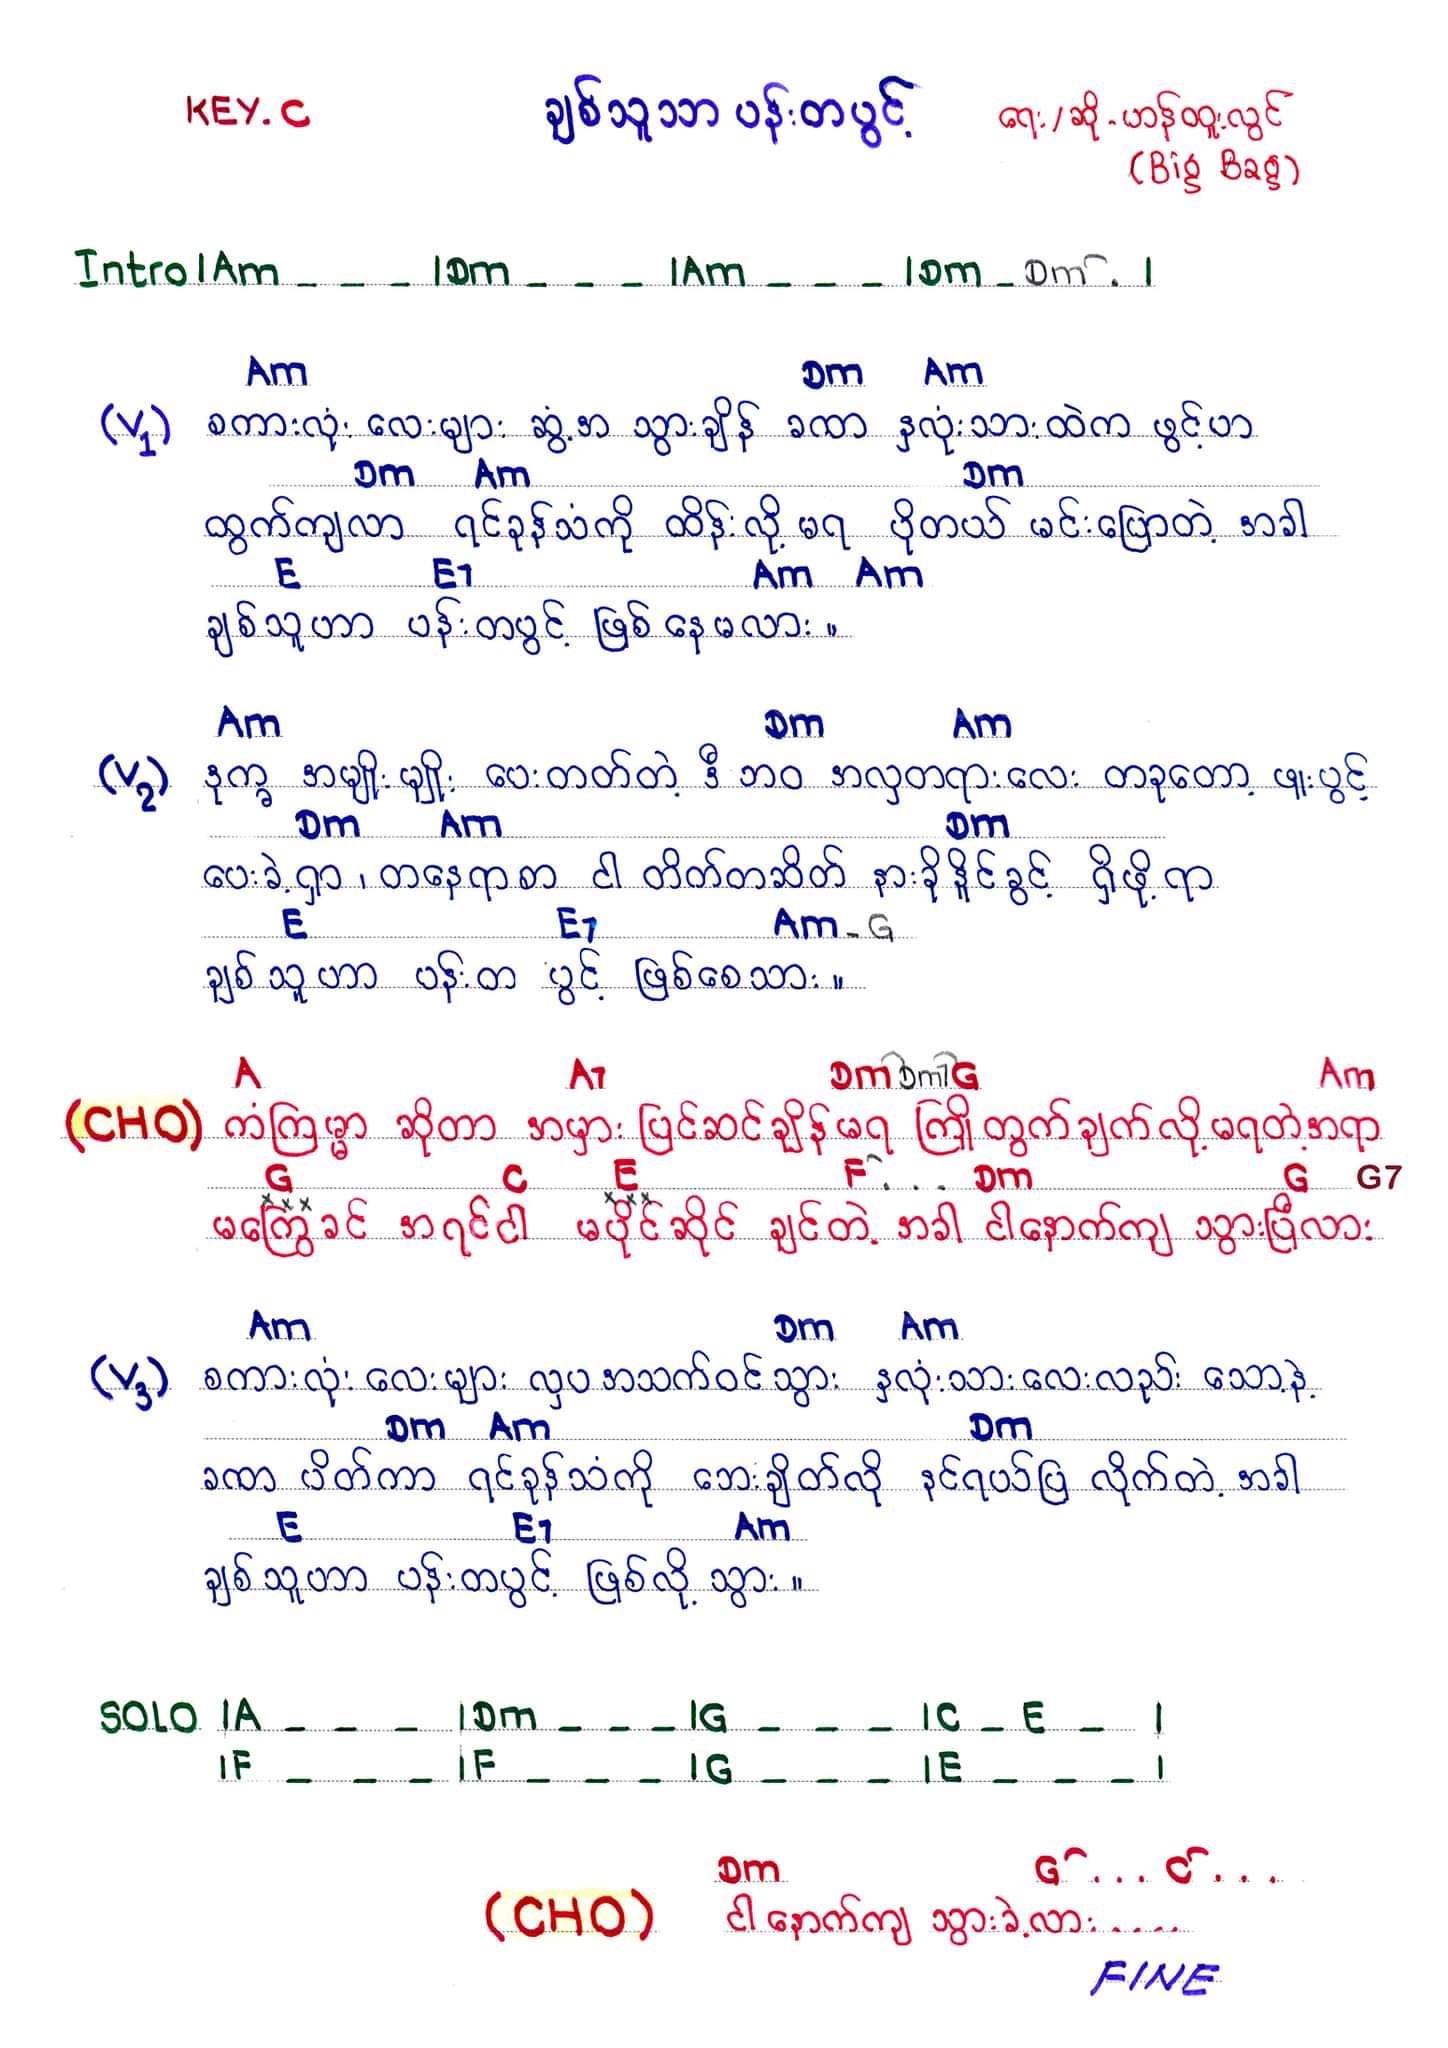 KEY. C ချစ်သူသာ ပန်းတပွင့် ရေး/ဆို - ဟန်ထူးလွင်
(Big Bag)
Intro |Am _ _ _ |Dm _ _ _ |Am _ _ _ |Dm _ Dm . |
Am Dm Am
(V1) စကားလုံး လေးများ ဆွံ့အ သွားချိန် ခဏာ နှလုံးသားထဲက ဖွင့်ဟာ
Dm Am Dm
ထွက်ကျလာ ရင်ခုန်သံကို ထိန်းလို့မရ ပိုတယ် မင်းပြောတဲ့ အခါ
E E7 Am Am
ချစ်သူဟာ ပန်းတပွင့် ဖြစ်နေမလား။
Am Dm Am
(V2) ဒုက္ခ အမျိုးမျိုး ပေးတတ်တဲ့ ဒီ ဘဝ အလှတရားလေး တခုတော့ ဖူးပွင့်
Dm Am Dm
ပေးခဲ့ရှာ ၊ တနေရာစာ ငါ တိတ်တဆိတ် နားခိုနိုင်ခွင့် ရှိဖို့ရာ
E E7 Am - G
ချစ်သူဟာ ပန်းတ ပွင့် ဖြစ်စေသား။
A A7 Dm Dm7 G Am
(CHO) ကံကြမ္မာ ဆိုတာ အမှား ပြင်ဆင်ချိန်မရ ကြိုတွက်ချက်လို့မရတဲ့အရာ
G C E F . . . Dm G G7
x x x x x x
မကြွေခင် အရင်ငါ မပိုင်ဆိုင် ချင်တဲ့ အခါ ငါနောက်ကျ သွားပြီလား
Am Dm Am
(V3) စကားလုံး လေးများ လှပအသက်ဝင်သွား နှလုံးသားလေးလည်း သော့နဲ့
Dm Am Dm
ခဏာ ပိတ်ကာ ရင်ခုန်သံကို ဘေးချိတ်လို့ နင်ရယ်ပြ လိုက်တဲ့ အခါ
E E7 Am
ချစ်သူဟာ ပန်းတပွင့် ဖြစ်လို့ သွား။
SOLO |A _ _ _ |Dm _ _ _ |G _ _ _ |C _ E _ |
|F _ _ _ |F _ _ _ |G _ _ _ |E _ _ _ |
Dm G . . . C . . .
(CHO) ငါနောက်ကျ သွားခဲ့လား.....
FINE